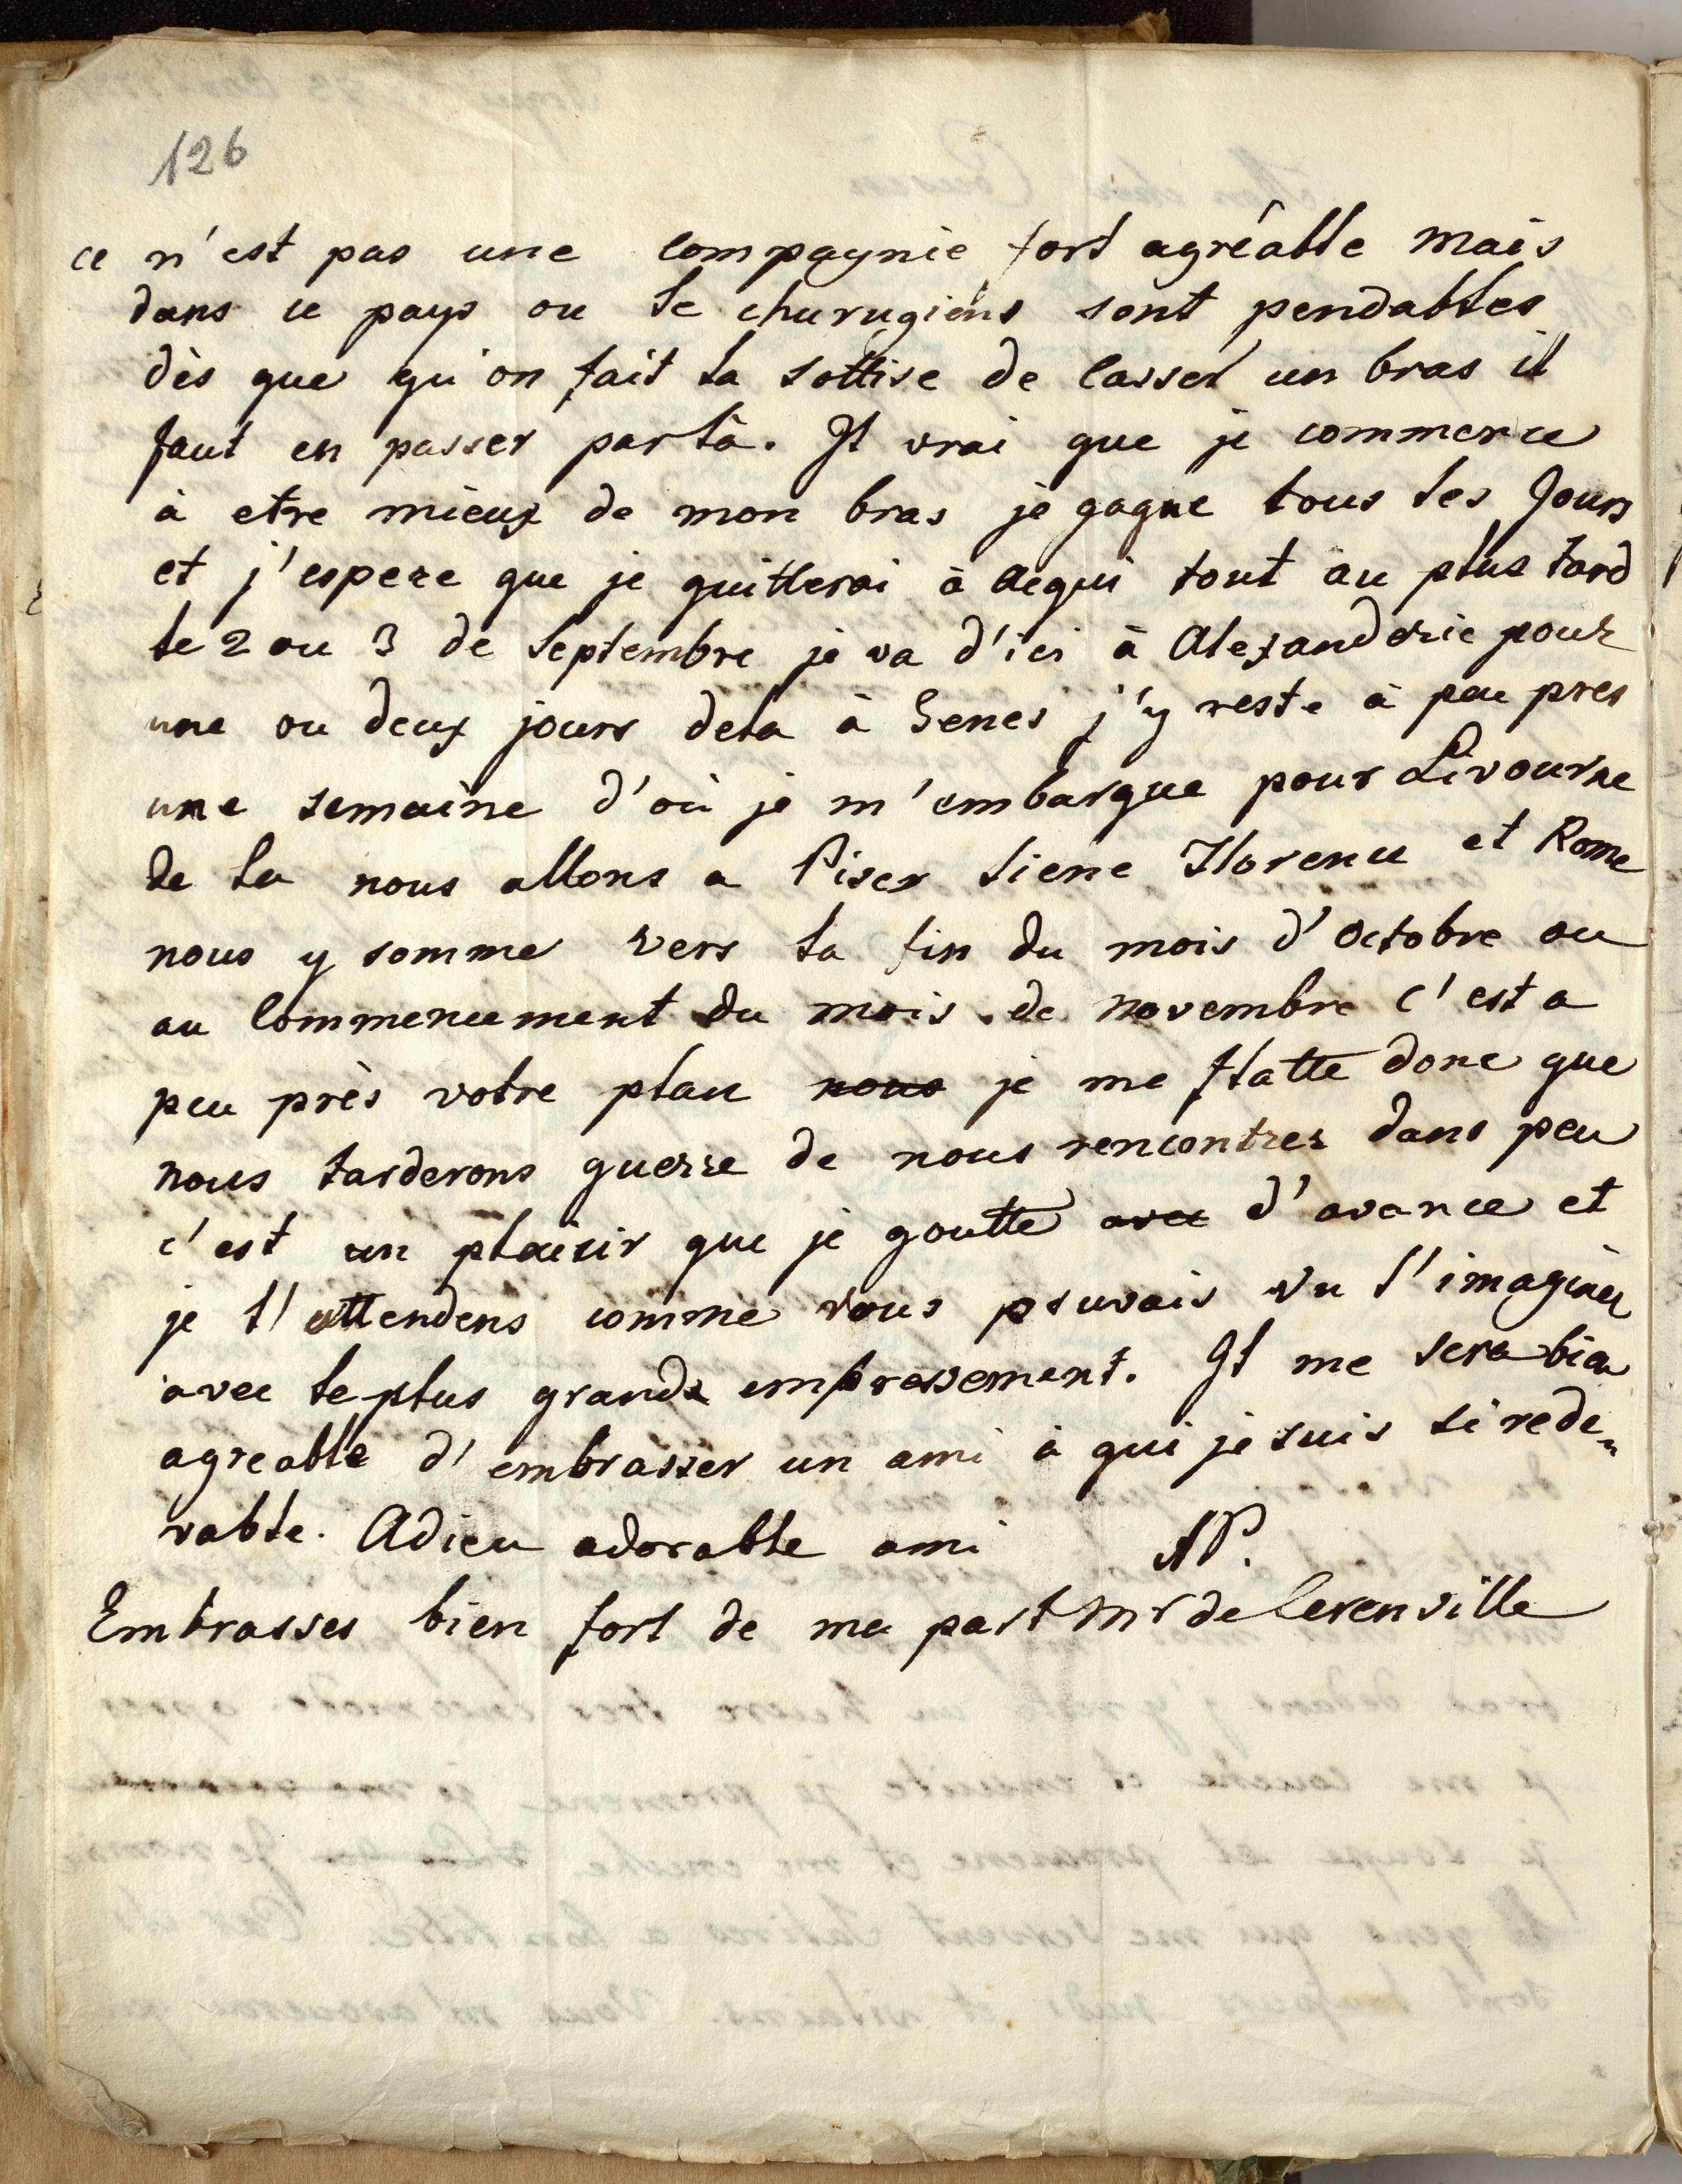 126
ce n'est pas une compagnie fort agréable mais
dans ce pays ou le chururgiens sont pendables
dès que qu'on fait la sottise de casser un bras il
faut en passer par là. Il vrai que je commence
à etre mieux de mon bras je gagne tous les Jours
et j'espere que je quitterai à Acqui tout au plus tard
le 2 ou 3 de Septembre je va d'ici à Alexanderie pour
une ou deux jours dela à Genes j'y reste à peu pres
une semaine d'où je m'embarque pour Livourne
de la nous allons a Pise Siene Florence et Rome
nous y somme vers la fin du mois d'Octobre ou
au Commencement du mois de novembre c'est a
peu près votre plan nous je me flatte donc que
nous tarderons guerre de nous rencontrer dans peu
c'est un plaisir que je goutte avec d'avance et
je l'attendens comme vous pouvais vu l'imaginer
avec le plus grande empressement. Il me sera bien
agreable d'embrasser un ami à qui je suis si rede„
vable. Adieu adorable ami AP.
Embrasses bien fort de ma part Mr de Cerenville